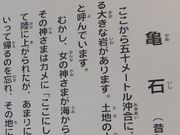 亀石（昔
かめいし
ここから五十メートル沖合に、
る大きな岩があります。土地の
と呼んでいます。
むかし、女の神さまが海から
その神さまはカメに「ここにし
て陸に上がられたが、あまりに
いって帰るのを忘れ、その地に